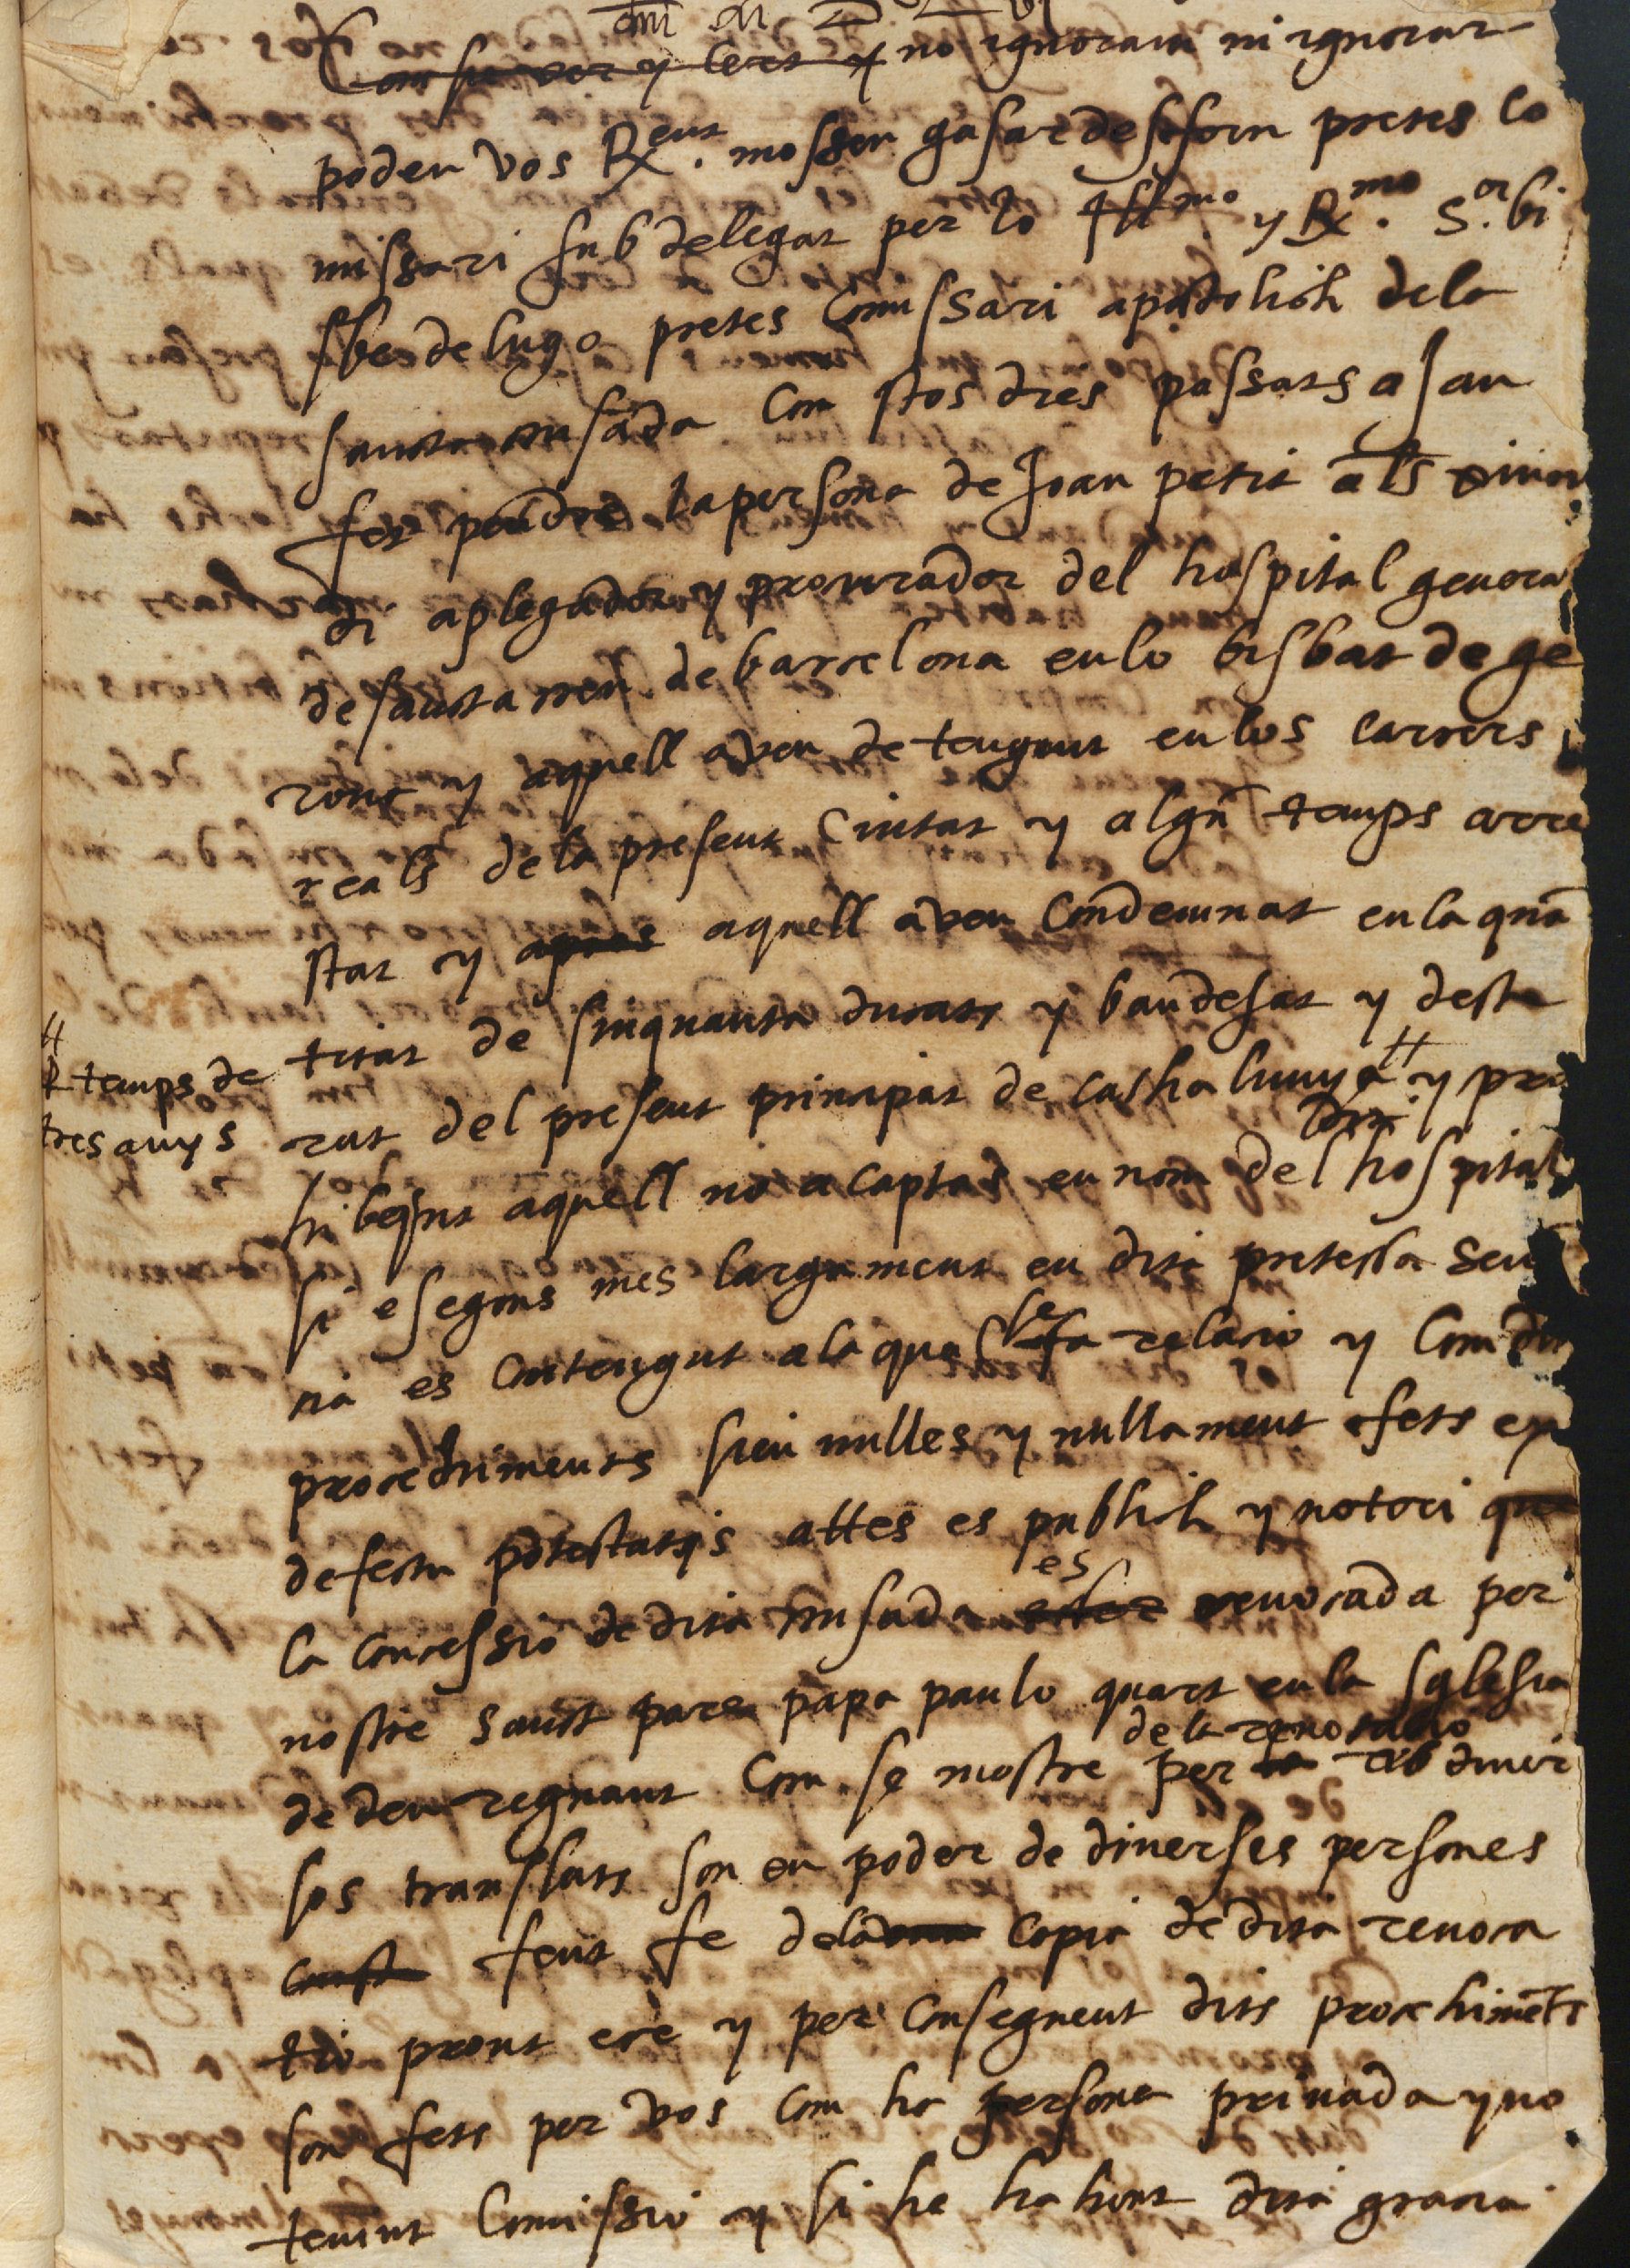 Com sie ver y cert y no ignoram ni ignorar
poden vos Rx.ent mossen gaspar desforn pretes co
missari subdelegat per lo Illmo. y Rx.mo S.or bi
sbe de lugo pretes comissari apostolich de la
sancta crusada com stos dies passats a jau
fet pendre la persona de Joan petit als
di aplegador y procurador del hospital genera
de sancta creu de barcelona en lo bisbat de ge
rona y aquell aveu detengut en los carcers
reals de la present Ciutat y algu temps arre
stat y apres aquell aveu condemnat en la qua
titat de sinquanta ducats y bandejat y deste
# temps de
tres anys
rrat del present principat de cathalunya # y pro
dit
hibejnt aquell no acaptas en nom del hospital
si e segons mes largament en dita pretessa sen
cia es contengut a la qual se fa relacio y com dits
procehiments sien nulles y nullament fets ex
defectu potestatis attes es publich y notori que
es
la concessio de dita crusada esser revocada per
nostre sanct pare papa paulo quart en la sglesia
de la revocatio
de deu regnant com se mostre per la diver
sos translats son en poder de diverses persones
fent fe de la copia de dita revoca
tio prout ecce y per consequent dits procehimets
son fets per vos com ha persona privada y no
tenint comissio y si he ha hont dita gracia